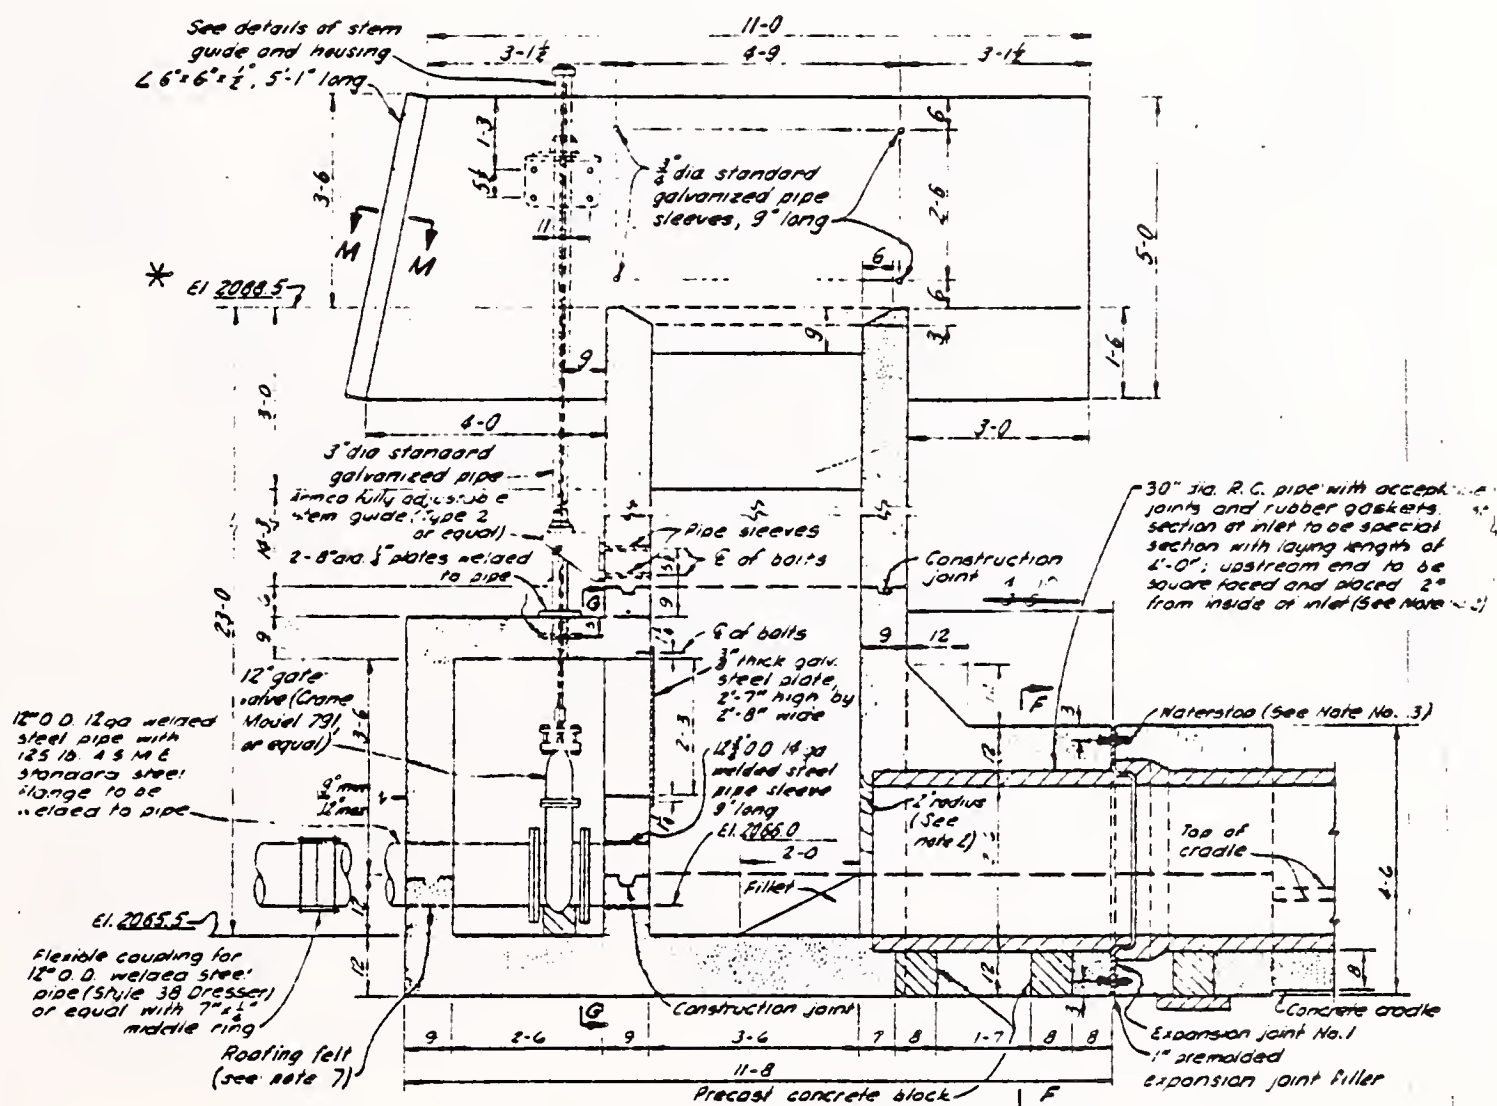 11-0
3-1½
4-9
3-1½
See details of stem
guide and housing
∠ 6"x6"x½", 5'-1" long
3-6
1-3
5½
11
M
M
dia standard
galvanized pipe
sleeves, 9" long
6
2-6
6
6
5-0
*
El. 2088.5
9
3
1-6
9
3-0
4-0
3-0
3" dia standard
galvanized pipe
Armco fully adjustable
stem guide (Type 2
or equal)
2-8" dia. plates welded
to pipe
Pipe sleeves
℄ of bolts
Construction
joint
30" dia. R.C. pipe with
joints and rubber gaskets
section at inlet to be special
section with laying length of
4'-0"; upstream end to be
square faced and placed 2"
from inside of inlet (See Note
14-3
6
9
23-0
G
9
9
12
℄ of bolts
thick galv.
steel plate,
2'-7" high by
2'-8" wide
2-3
12" gate
valve (Crane
Model 791,
or equal)
3-6
12" O.D. 12 ga welded
steel pipe with
125 lb. A S M E
standard steel
flange to be
welded to pipe
9" min
12" max
O.D. 14 ga
welded steel
pipe sleeve
9" long
El. 2066.0
2-0
Fillet
2" radius
(See
note 2)
12
F
3
Waterstop (See Note No. 3)
Top of
cradle
4-6
El. 2065.5
12
12
12
8
3
Flexible coupling for
12" O.D. welded steel
pipe (Style 38 Dresser)
or equal with
middle ring
Roofing felt
(see note 7)
G
Construction joint
Concrete cradle
Expansion joint No. 1
1" premolded
expansion joint filler
9
2-6
9
3-6
7
8
1-7
8
8
11-8
Precast concrete block
F